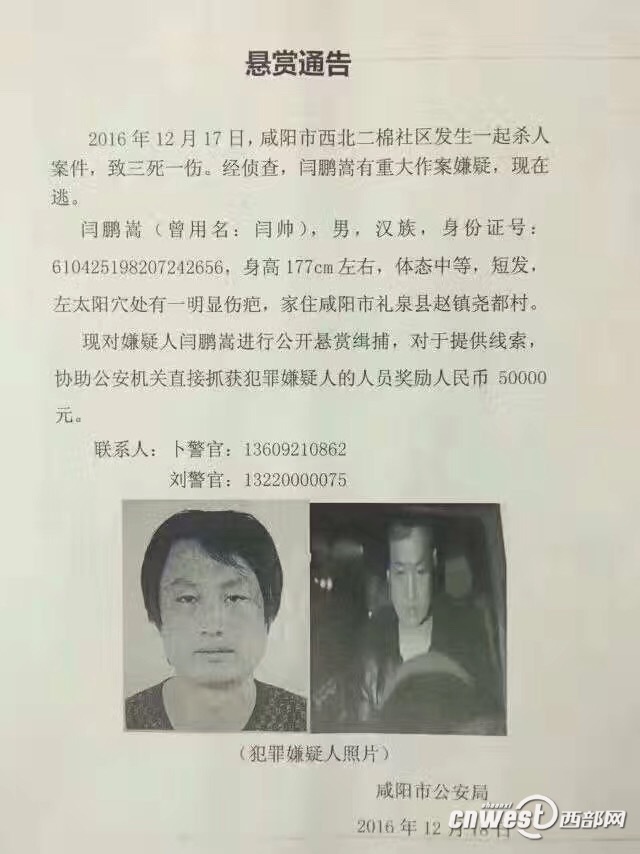 悬赏通告
2016年12月17日，咸阳市西北二棉社区发生一起杀人
案件，致三死一伤。经侦查，闫鹏嵩有重大作案嫌疑，现在
逃。
闫鹏嵩（曾用名：闫帅），男，汉族，身份证号：
610425198207242656，身高177cm左右，体态中等，短发，
左太阳穴处有一明显伤疤，家住咸阳市礼泉县赵镇尧都村。
现对嫌疑人闫鹏嵩进行公开悬赏缉捕，对于提供线索，
协助公安机关直接抓获犯罪嫌疑人的人员奖励人民币 50000
元。
联系人：卜警官：13609210862
刘警官：13220000075
（犯罪嫌疑人照片）
咸阳市公安局
2016年12月18日
shaanxi
cnwest西部网